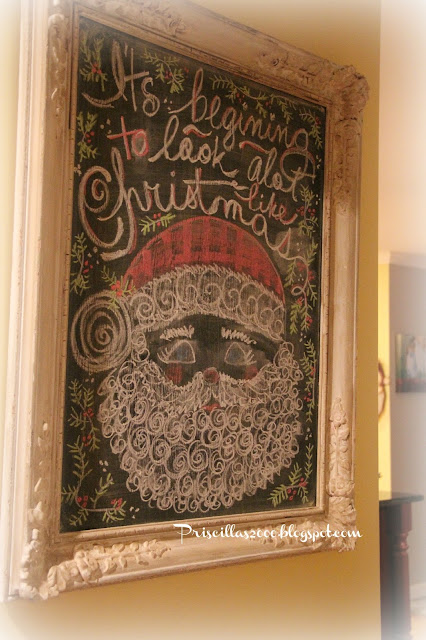 It's begining
to look alot
like
Christmas
Priscillas2000.blogspot.com